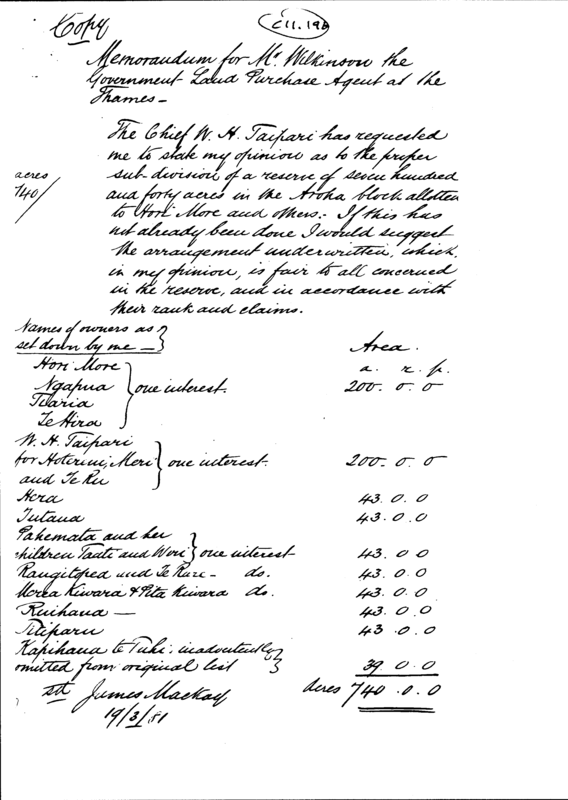 Copy
Memorandum for Mr. Wilkinson the
Government Land Purchase Agent at the
Thames -
The Chief W. H. Taipari has requested
me to state my opinion as to the proper
sub division of a reserve of seven hundred
and forty acres in the Aroha block allotted
to Hori More and others. - If this has
not already been done I would suggest
the arrangement underwritten, which,
in my opinion, is fair to all concerned
in the reserve, and in accordance with
their rank and claims.
acres
740/
Names of owners as
set down by me -
Area.
a. r. p.
Hori More
Ngapua one interest. 200. 0. 0
Te Hira
W. H. Taipari
for Hoterini, Meri one interest. 200. 0. 0
and Te Ru
Hera 43. 0. 0
Tutana 43. 0. 0
Pahemata and her
children and Wori one interest 43. 0 0
and Te - do. 43. 0. 0
Kiwara & Pita Kiwara do. 43. 0. 0
Ruihana - 43. 0. 0
Titiparu 43. 0. 0
Kapihana te Tuhi, inadvertently
omitted from original list 39. 0. 0
sd James Mackay acres 740. 0. 0
19/3/81